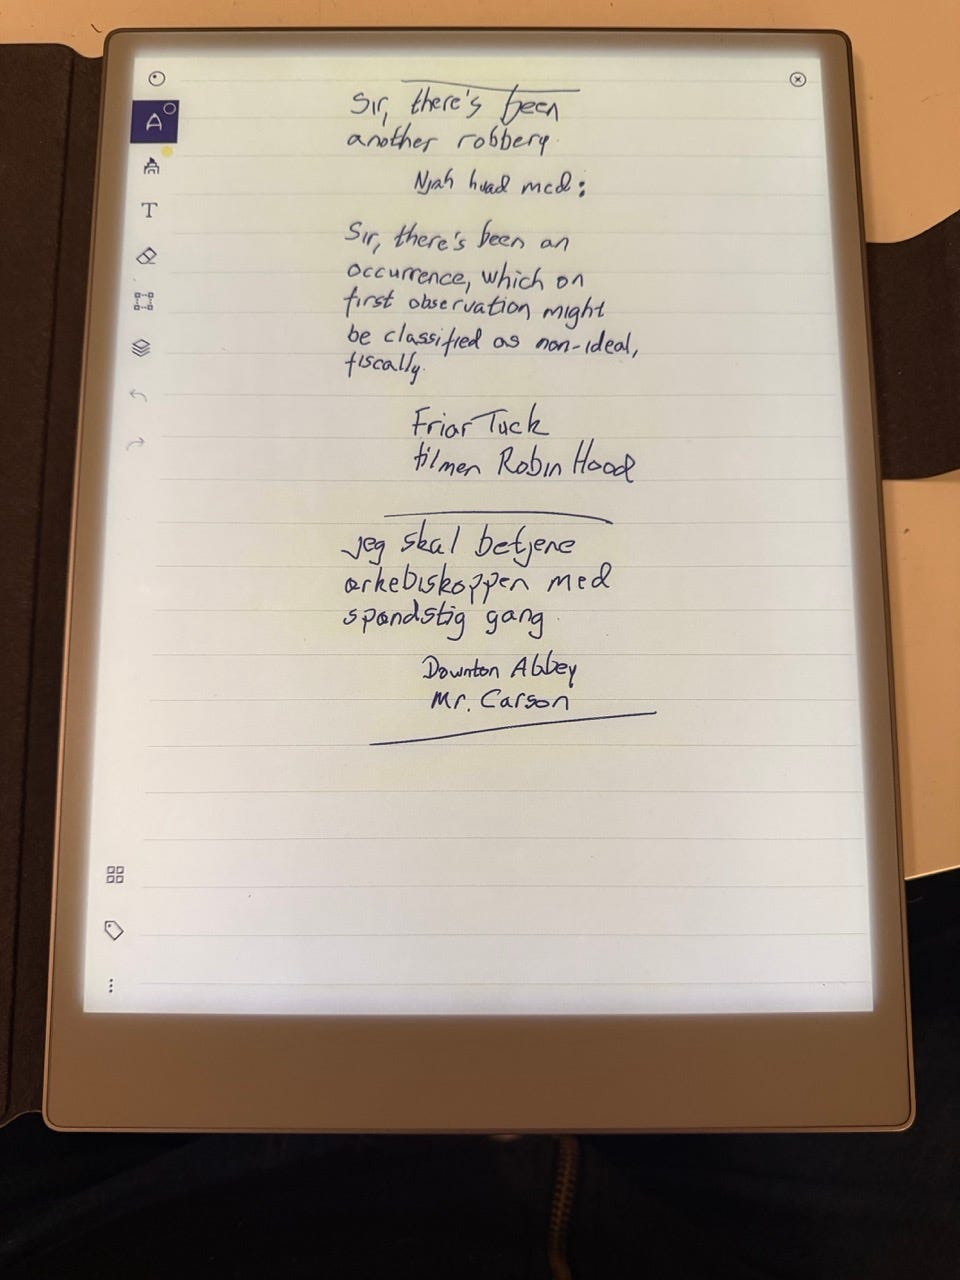 Sir, there's been
another robbery.
Njah hvad med:
Sir, there's been an
occurrence, which on
first observation might
be classified as non-ideal,
fiscally.
Friar Tuck
filmen Robin Hood
Jeg skal betjene
ærkebiskoppen med
spændstig gang.
Downton Abbey
Mr. Carson